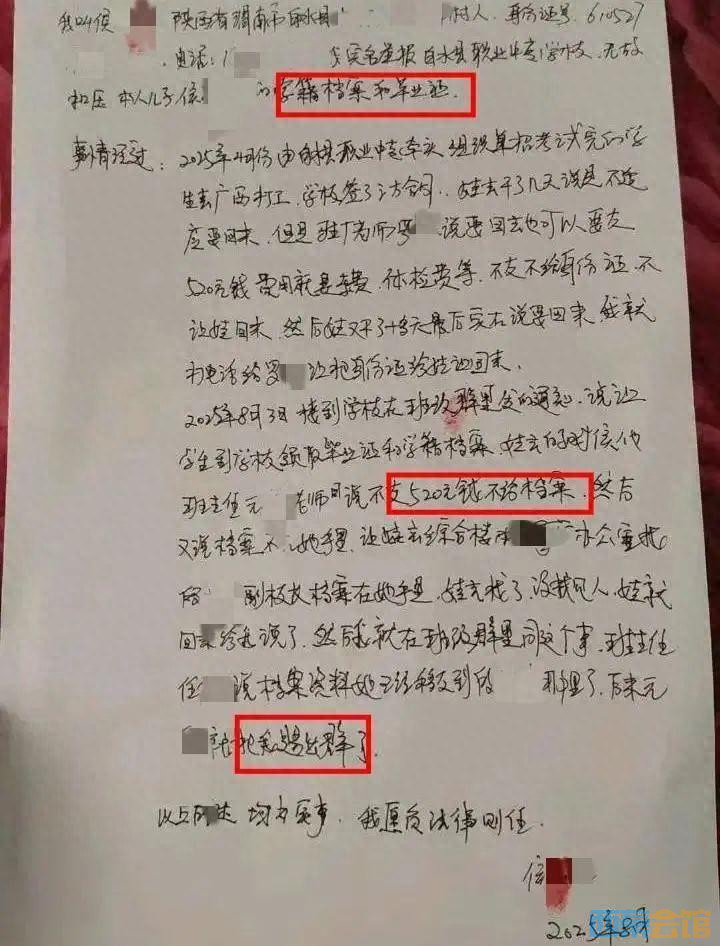 我叫侯 陕西省渭南市白水县 村人、身份证号,610527
电话:1 实名举报白水县职业中专学校,无故
扣压本人儿子侯 的学籍档案和毕业证.
事情经过:2025年4月份由白水县职业中专牵头组织单招考试完的学
生去广西打工,学校签了三方合同.,娃去干了几天说是不适
应要回来,但是驻厂老师罗 说要回去也可以要交
520元钱费用就是车费,体检费等,不交不给身份证,不
让娃回来,然后娃又干了十多天最后实在说要回来我就
打电话给罗 让把身份证给娃让回来.
2025年8月3日接到学校在班级群里发的通知,说让
学生到学校领取毕业证和学籍档案,娃去的时候他
班主任元 老师说不交520元钱不给档案,然后
又说档案不在她手里,让娃去综合楼 办公室找
副校长档案在她手里,娃去找了,没找见人,娃就
回来给我说了,然后我就在班级群里问这个事,班主任
说档案资料她已经移交到 那里了,后来元
把我踢出群了.
以上 均为实事,我愿负法律责任.
侯
2025年8月
会馆